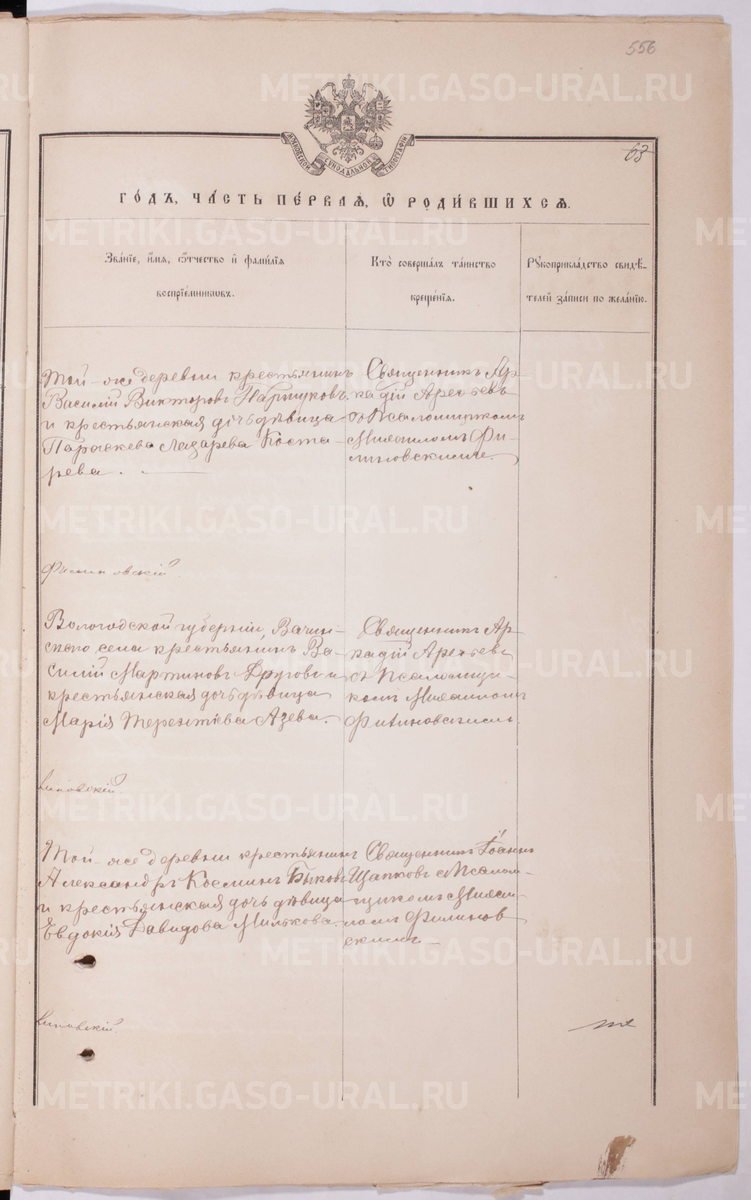 556
63
МОСКОВСКОЙ СѴНОДАЛЬНОЙ ТИПОГРАФІИ
ГО́ДЪ, ЧА́СТЬ ПЕ́РВАЯ, Ѿ РОДИ́ВШИХСЯ.
Зва́нїе, и́мѧ, ѻ҆́тчество и҆ фами́лїѧ
воспрїе́мниковъ.
Кто̀ соверша́лъ та́инство
креще́нїѧ.
Рꙋкоприкла́дство свидѣ́-
телей за́писи по жела́нїю.
Той-же деревни крестьянинъ
Василій Викторовъ Паршуковъ
и крестьянская дочь дѣвица
Параскева Лазарева Коста-
рева.
Священникъ Ар-
кадій Арефьевъ
съ Псаломщикомъ
Михаиломъ Фи-
линовскимъ.
Филиновскій
Вологодской губерніи,
скаго села крестьянинъ Ва-
силій Мартиновъ Друговъ и
крестьянская дочь дѣвица
Марія Терентьева Азева.
Священникъ Ар-
кадій Арефьевъ
съ Псаломщи-
комъ Михаиломъ
Филиновскимъ.
линовскій
Той-же деревни крестьянинъ
Александръ Космин Быковъ
и крестьянская дочь дѣвица
Евдокія Давидова Милькова.
Священникъ Іоаннъ
Щапковъ съ Псалом-
щикомъ Михаи-
ломъ Филинов-
скимъ
линовскій
METRIKI.GASO-URAL.RU